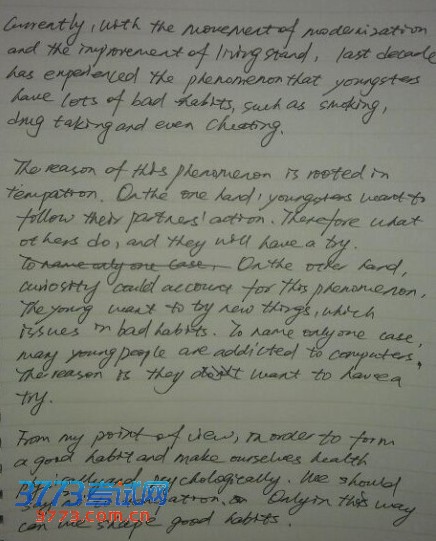 Currently, with the movement of modernization
and the improvement of living stand, last decade
has experienced the phenomenon that youngsters
have lots of bad habits, such as smoking,
drug taking and even cheating.
The reason of this phenomenon is rooted in
temptation. On the one hand, youngsters want to
follow their partners' action. Therefore what
others do, and they will have a try.
To name only one case, On the other hand,
curiosity could account for this phenomenon,
The young want to try new things, which
issues in bad habits. To name only one case,
many young people are addicted to computers,
The reason is they want to have a
try.
From my point of view, in order to form
a good habit and make ourselves health
psychologically. We should
Only in this way
can we shape good habits.
3773考试网
3773.com.cn